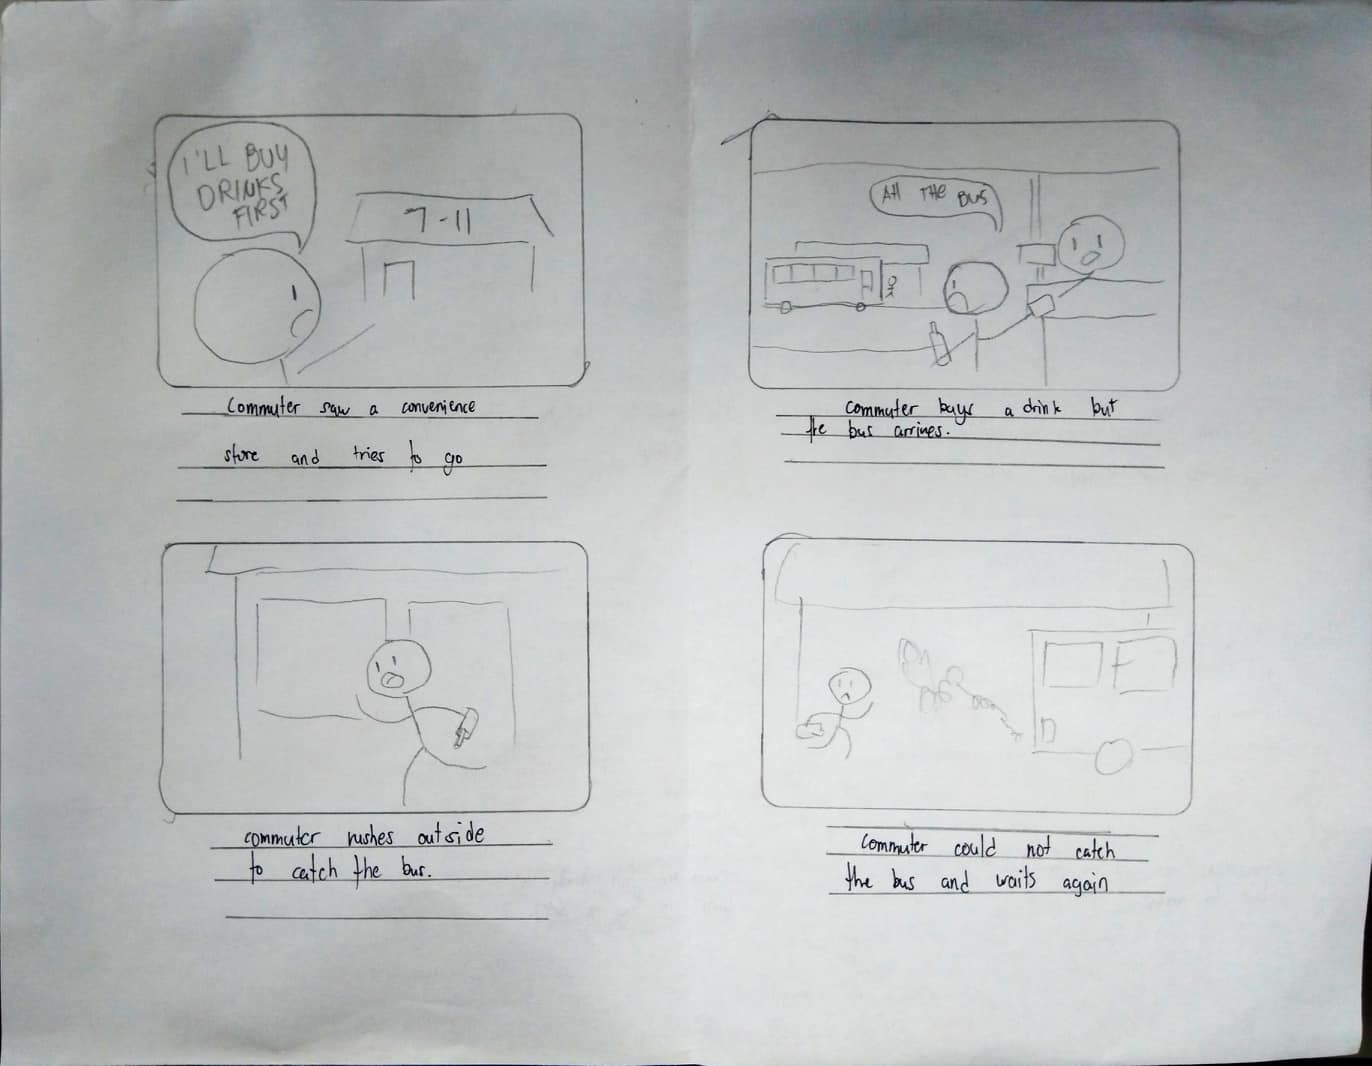 I'LL BUY
DRINKS
FIRST
7-11
Commuter saw a convenience
store and tries to go
AH THE BUS
commuter buys a drink but
the bus arrives.
commuter rushes outside
to catch the bus.
Commuter could not catch
the bus and waits again